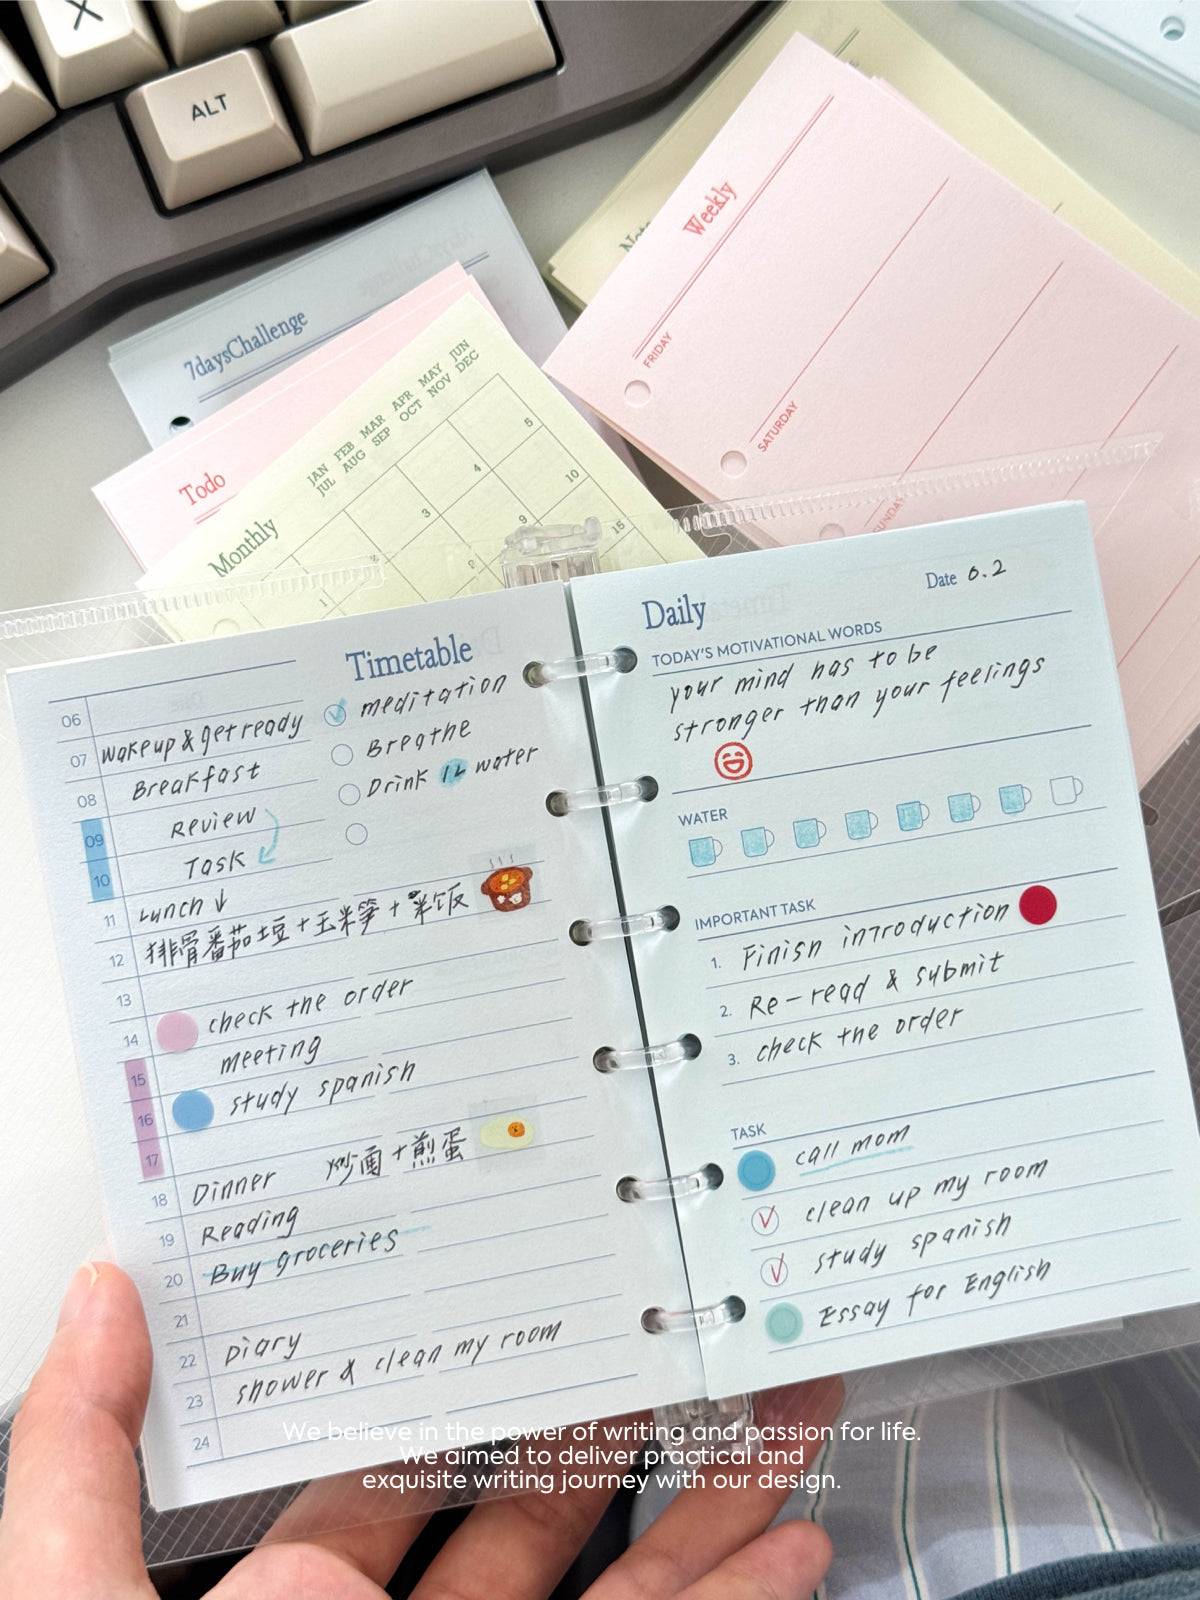 X
ALT
7daysChallenge
Todo
JAN FEB MAR APR MAY JUN
JUL AUG SEP OCT NOV DEC
Monthly
1
3
4
5
9
10
15
Weekly
FRIDAY
SATURDAY
SUNDAY
Timetable
meditation
Breathe
Drink 1L water
06
07 wakeup & get ready
08 Breakfast
09 Review
10 Task
11 Lunch ↓
12 排骨番茄土豆+玉米笋+米饭
13
14 check the order
15 meeting
16 study spanish
17
18 Dinner 炒面+煎蛋
19 Reading
20 Buy groceries
21
22 Diary
23 shower & clean my room
24
Daily
Date 6.2
TODAY'S MOTIVATIONAL WORDS
your mind has to be
stronger than your feelings
WATER
IMPORTANT TASK
1. Finish introduction
2. Re-read & submit
3. check the order
TASK
call mom
clean up my room
study spanish
Essay for English
We believe in the power of writing and passion for life.
We aimed to deliver practical and
exquisite writing journey with our design.